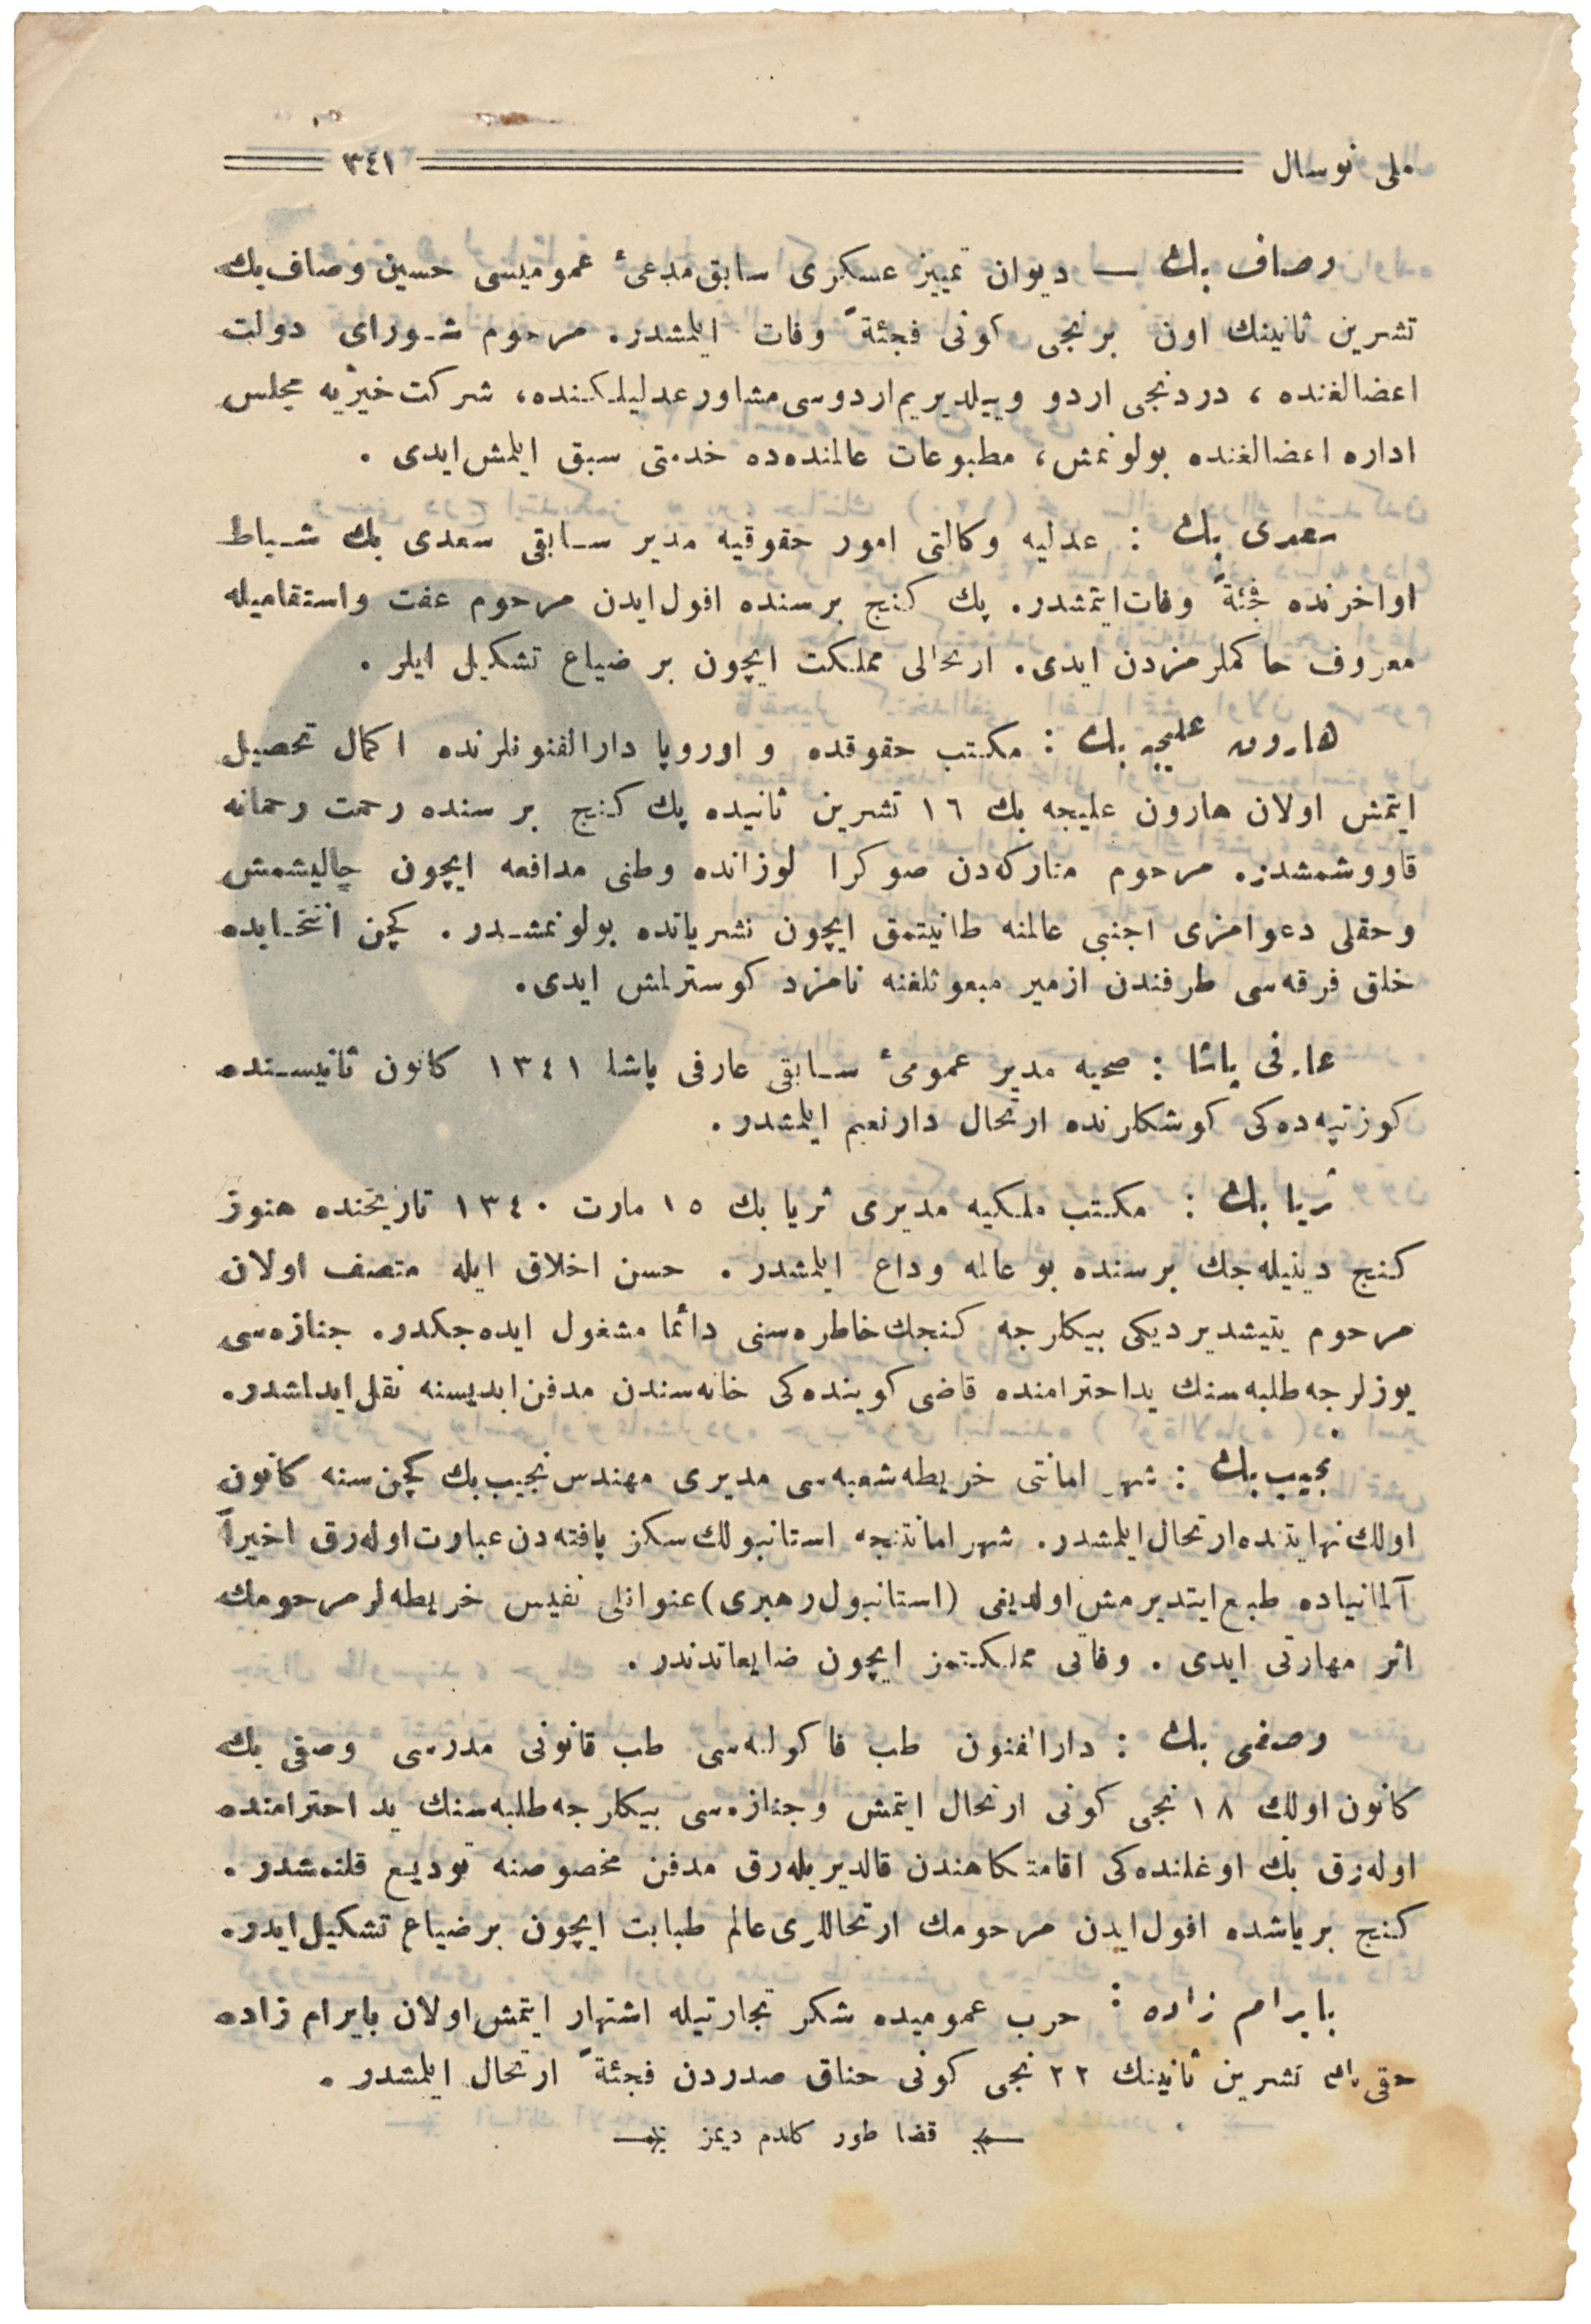 ملی نوسال ٣٤١
وصاف بك — دیوان تمییز عسكری سابق مدعیٔ عمومیسی حسین وصاف بك
تشرین ثانینك اون برنجی كونی فجئةً وفات ایلمشدر. مرحوم شورای دولت
اعضالغنده ، دردنجی اردو وییلدیریم اردوسی مشاور عدلیلكنده، شركت خیریه مجلس
اداره اعضالغنده بولونمش، مطبوعات عالمنده‌ده خدمتی سبق ایلمش ایدی .
سعدی بك : عدلیه وكالتی امور حقوقیه مدیر سابقی سعدی بك شباط
اواخرنده فجئةً وفات ایتمشدر. پك كنج برسنده افول ایدن مرحوم عفت واستقامیله
معروف حاكملرمزدن ایدی. ارتحالی مملكت ایچون بر ضیاع تشكیل ایلر .
هارون علیجه بك : مكتب حقوقده و اوروپا دارالفنونلرنده اكمال تحصیل
ایتمش اولان هارون علیجه بك ١٦ تشرین ثانیده پك كنج بر سنده رحمت رحمانه
قاووشمشدر. مرحوم متاركه‌دن صوكرا لوزانده وطنی مدافعه ایچون چالیشمش
وحقلی دعوامزی اجنبی عالمنه طانیتمق ایچون نشریاتده بولونمشدر . كچن انتخابده
خلق فرقه‌سی طرفندن ازمیر مبعوثلغنه نامزد كوسترلمش ایدی.
عارفی پاشا : صحیه مدیر عمومیٔ سابقی عارفی پاشا ١٣٤١ كانون ثانیسنده
كوزتپه‌ده‌كی كوشكلرنده ارتحال دارنعیم ایلمشدر .
ثریا بك : مكتب ملكیه مدیری ثریا بك ١٥ مارت ١٣٤٠ تاریخنده هنوز
كنج دینیله‌جك برسنده بو عالمه وداع ایلمشدر . حسن اخلاق ایله متصف اولان
مرحوم یتیشدیردیكی بیكلرجه كنجك خاطره‌سنی دائما مشغول ایده‌جكدر. جنازه‌سی
یوزلرجه طلبه‌سنك یداحترامنده قاضی كوینده‌كی خانه‌سندن مدفن ابدیسنه نقل ایدلشدر.
نجیب بك : شهر امانتی خریطه شعبه‌سی مدیری مهندس نجیب بك كچن سنه كانون
اولك نهایتنده ارتحال ایلمشدر. شهر امانتنجه استانبولك سكز پافته‌دن عبارت اوله‌رق اخیراً
آلمانیاده طبع ایتدیرمش اولدیغی (استانبول رهبری) عنوانلی نفیس خریطه‌لر مرحومك
اثر مهارتی ایدی . وفاتی مملكتمز ایچون ضایعاتدندر .
وصفی بك : دارالفنون طب فاكولته‌سی طب قانونی مدرسی وصفی بك
كانون اولك ١٨ نجی كونی ارتحال ایتمش وجنازه‌سی بیكلرجه طلبه‌سنك ید احترامنده
اوله‌رق بك اوغلنده‌كی اقامتكاهندن قالدیریله‌رق مدفن مخصوصنه تودیع قلنمشدر .
كنج بریاشده افول ایدن مرحومك ارتحاللری عالم طبابت ایچون برضیاع تشكیل ایدر.
بایرام زاده : حرب عمومیده شكر تجارتیله اشتهار ایتمش اولان بایرام زاده
حقی بك تشرین ثانینك ٢٢ نجی كونی خناق صدردن فجئةً ارتحال ایلمشدر .
قضا طور كلدم دیمز